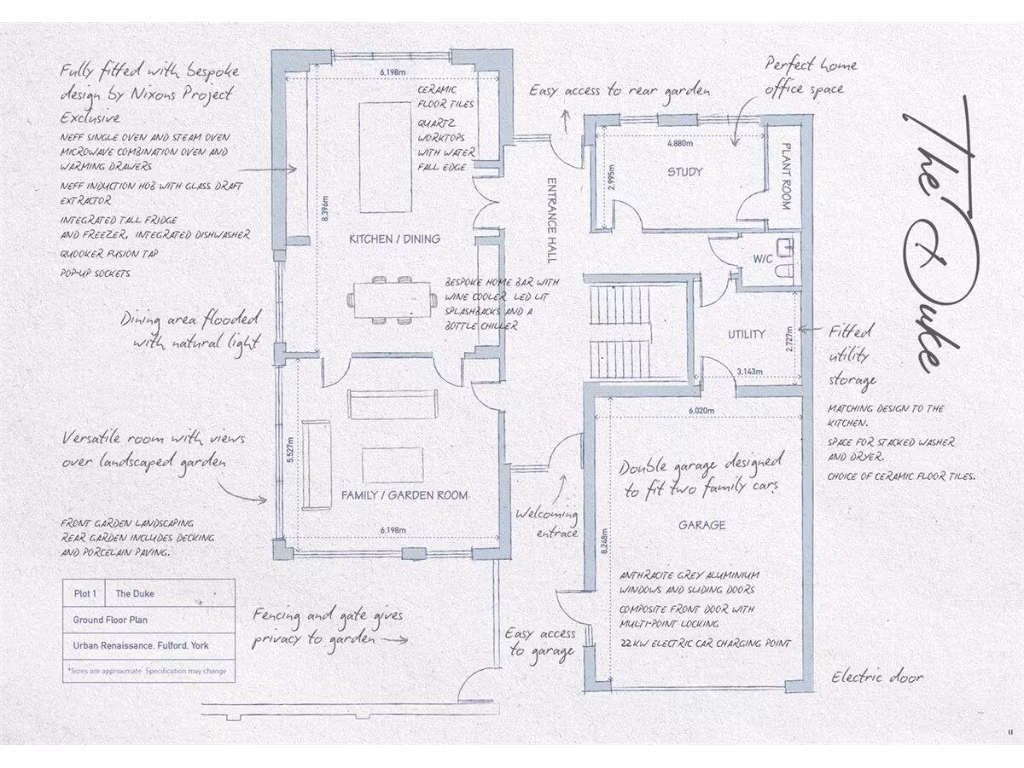 Fully fitted with bespoke
design by Nixons Project
Exclusive
NEFF SINGLE OVEN AND STEAM OVEN
MICROWAVE COMBINATION OVEN AND
WARMING DRAWERS
NEFF INDUCTION HOB WITH GLASS DRAFT
EXTRACTOR
INTEGRATED TALL FRIDGE
AND FREEZER, INTEGRATED DISHWASHER
QUOOKER FUSION TAP
POP-UP SOCKETS
Dining area flooded
with natural light
Versatile room with views
over landscaped garden
FRONT GARDEN LANDSCAPING
REAR GARDEN INCLUDES DECKING
AND PORCELAIN PAVING.
Plot 1 The Duke
Ground Floor Plan
Urban Renaissance, Fulford, York
*Sizes are approximate. Specification may change
6,198m
CERAMIC
FLOOR TILES
QUARTZ
WORKTOPS
WITH WATER
FALL EDGE
8,396m
KITCHEN / DINING
BESPOKE HOME BAR WITH
WINE COOLER, LED LIT
SPLASHBACKS AND A
BOTTLE CHILLER
5,527m
FAMILY / GARDEN ROOM
6,198m
Fencing and gate gives
privacy to garden
Easy access to rear garden
ENTRANCE HALL
Welcoming
entrace
Easy access
to garage
Perfect home
office space
4,880m
2,995m
STUDY
PLANT ROOM
W/C
UTILITY
2,727m
3,143m
Fitted
utility
storage
MATCHING DESIGN TO THE
KITCHEN.
SPACE FOR STACKED WASHER
AND DRYER.
CHOICE OF CERAMIC FLOOR TILES.
6,020m
Double garage designed
to fit two family cars
GARAGE
8,248m
ANTHRACITE GREY ALUMINIUM
WINDOWS AND SLIDING DOORS
COMPOSITE FRONT DOOR WITH
MULTI-POINT LOCKING
22KW ELECTRIC CAR CHARGING POINT
Electric door
The Duke
11